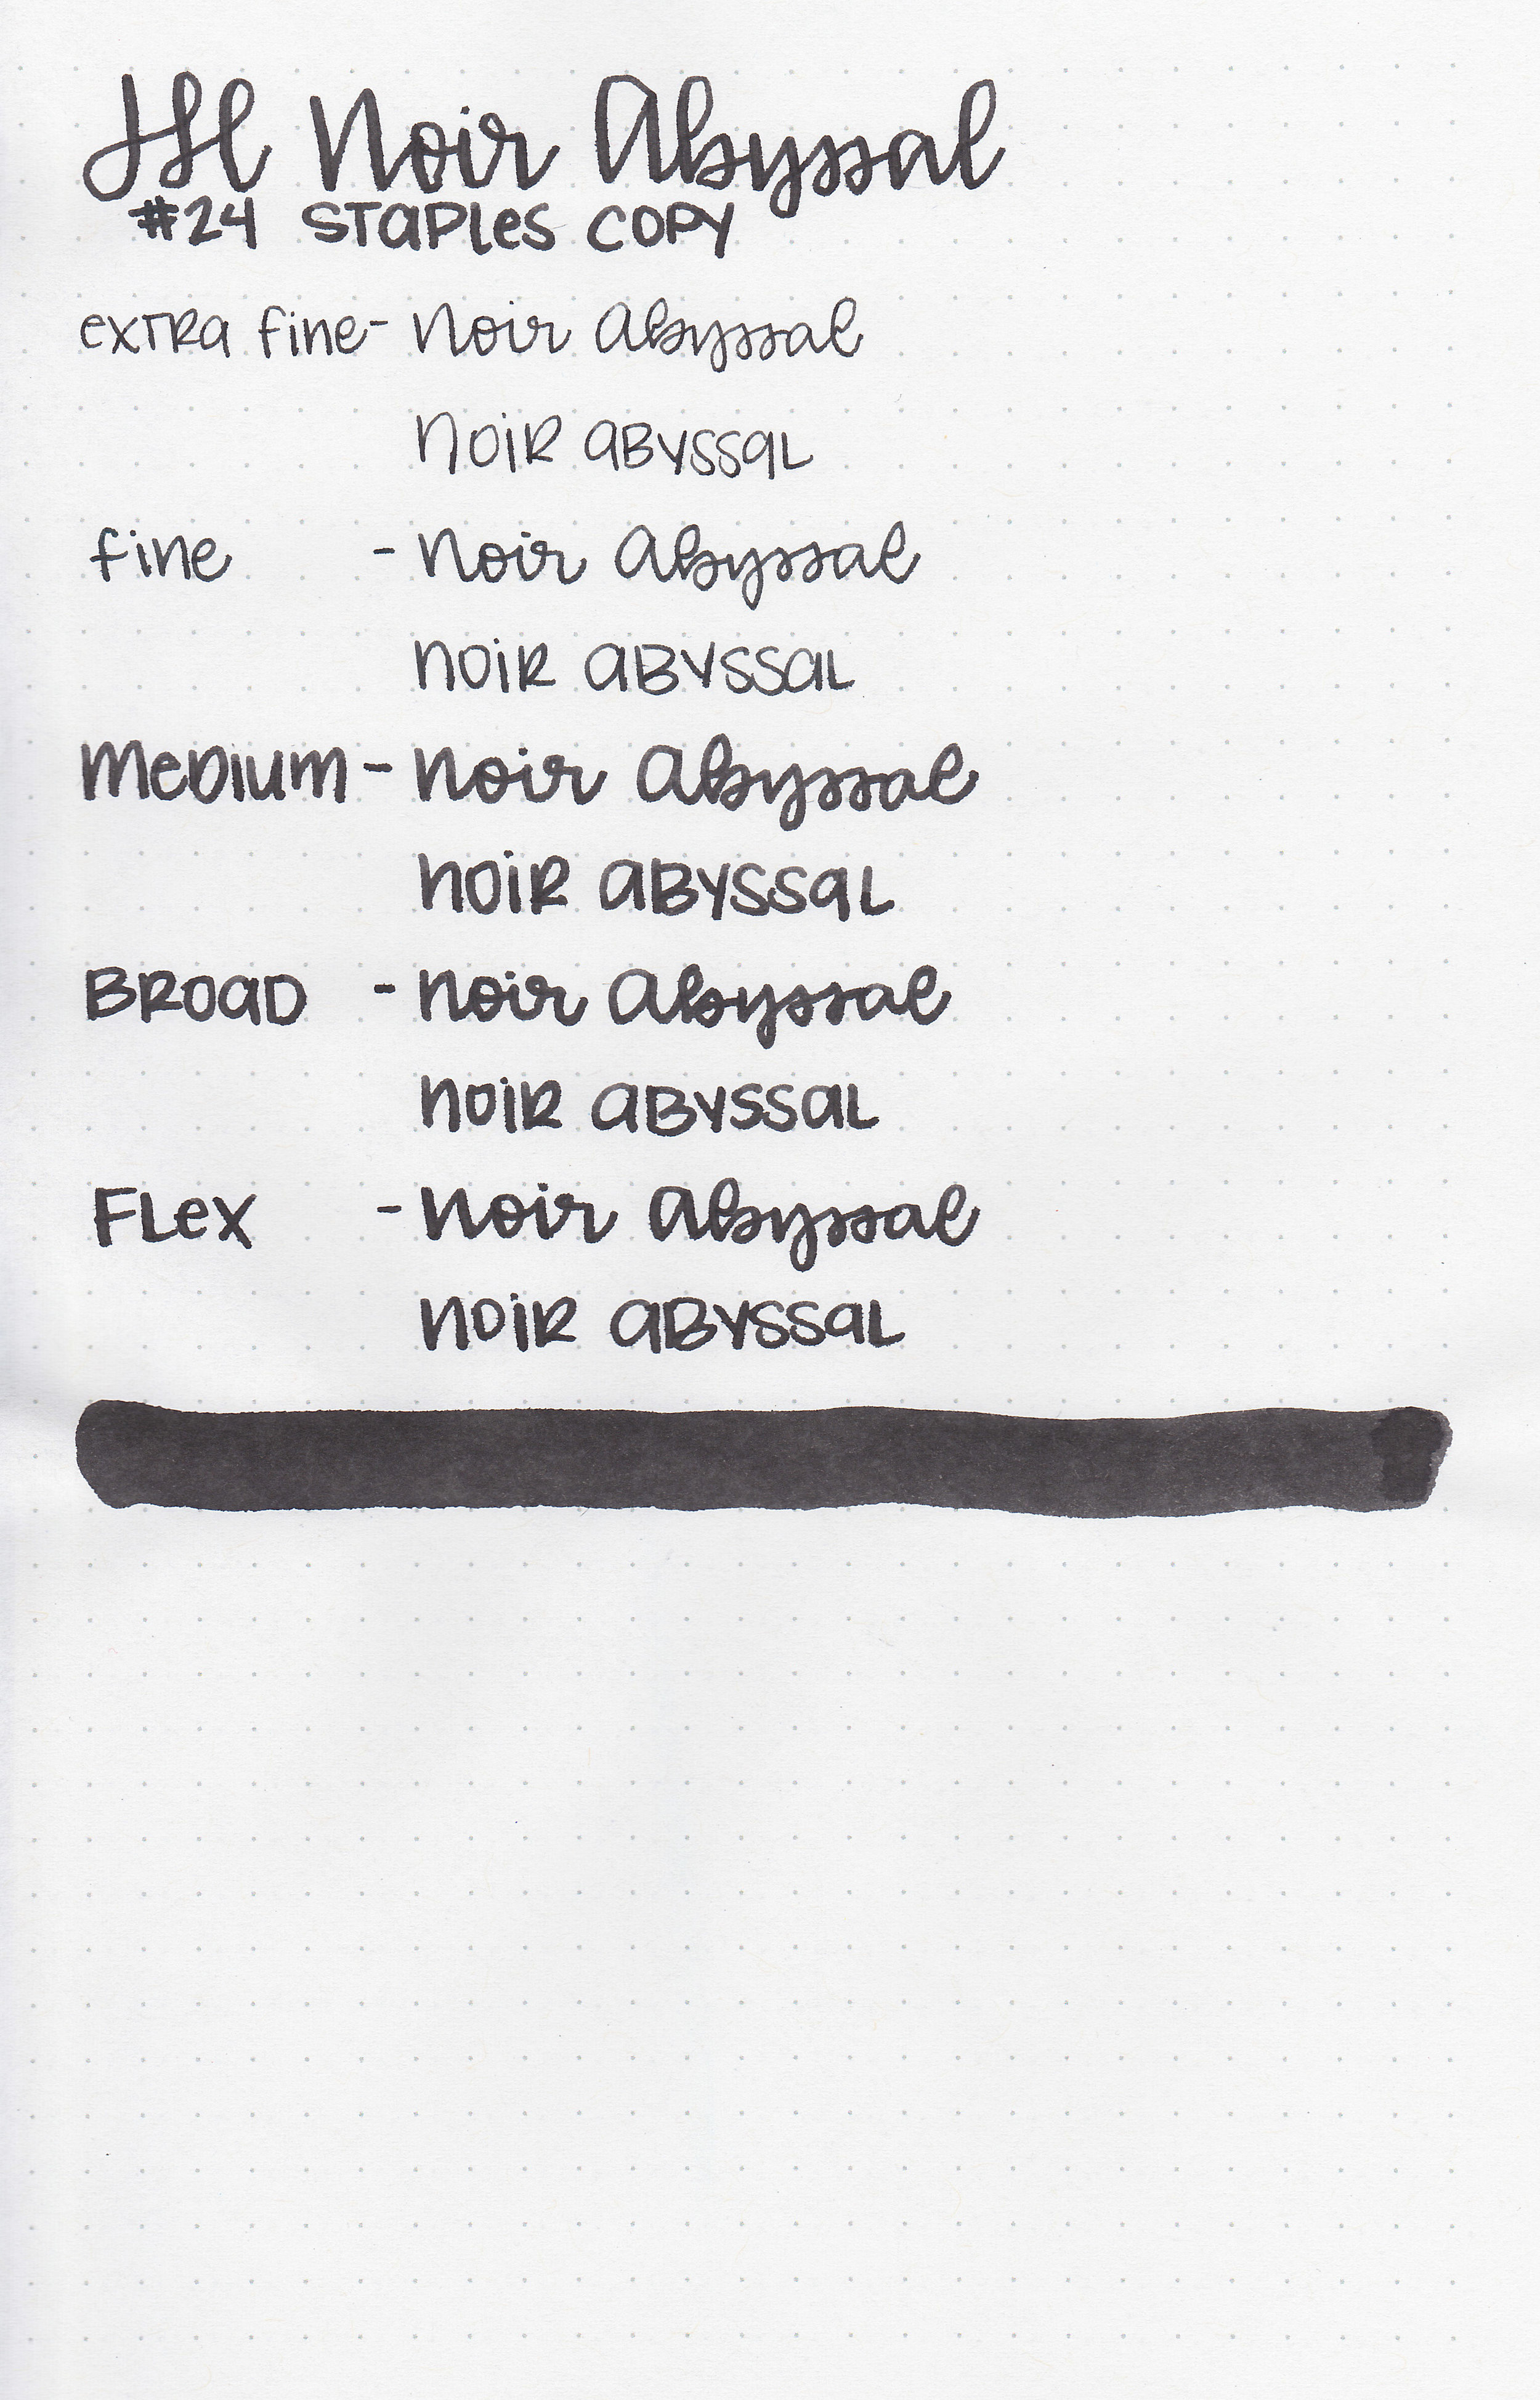 JH Noir Abyssal
#24 Staples Copy
extra fine - Noir Abyssal
Noir Abyssal
fine - Noir Abyssal
Noir Abyssal
Medium - Noir Abyssal
Noir Abyssal
Broad - Noir Abyssal
Noir Abyssal
Flex - Noir Abyssal
Noir Abyssal